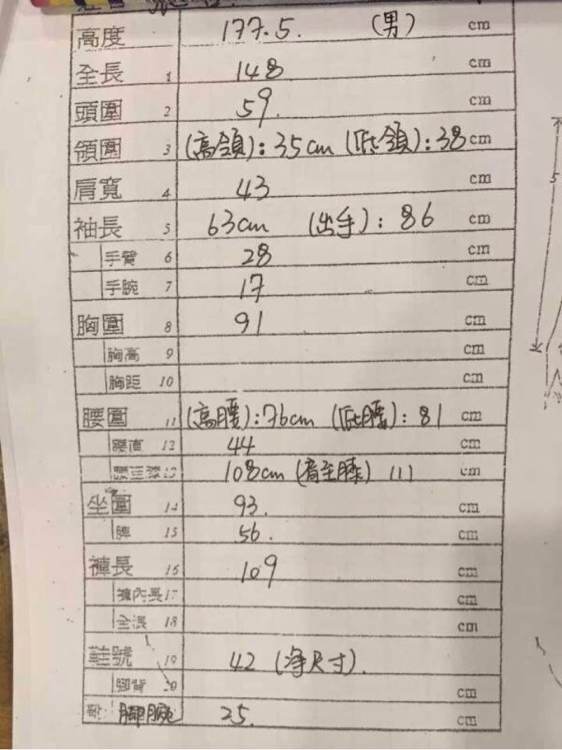 高度 177.5. (男) cm
全長 1 148 cm
頭圍 2 59. cm
領圍 3 (高領): 35cm (低領): 38cm
肩寬 4 43 cm
袖長 5 63cm (出手): 86 cm
手臂 6 28 cm
手腕 7 17 cm
胸圍 8 91 cm
胸高 9 cm
胸距 10 cm
腰圍 11 (高腰): 76cm (低腰): 81 cm
腰直 12 44 cm
13 108cm 111 cm
坐圍 14 93. cm
脾 15 56. cm
褲長 16 109 cm
褲內長 17 cm
全浪 18 cm
鞋號 19 42 (净尺寸).
腳背 20 cm
腳腕 25. cm
5